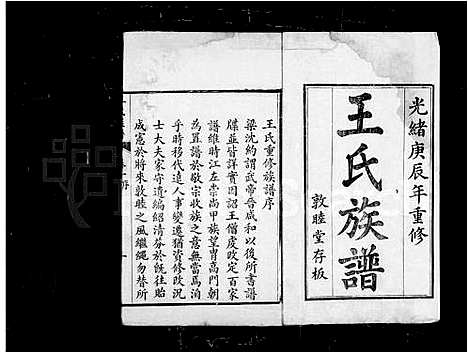 光緒庚辰年重修
王氏族譜
敦睦堂存板
王氏重修族譜序
梁沈約謂武帝晉咸和以後所書譜
牒並皆詳實因詔王僧虔改定百家
譜維時江左崇尚甲族望胄高門朝
為置譜於敬宗收族之意無當焉洎
乎時移代遠人事變遷猶資修敘況
士大夫家守遺編紹清芬於既往貽
成憲於將來敦睦之風繼繩勿替所